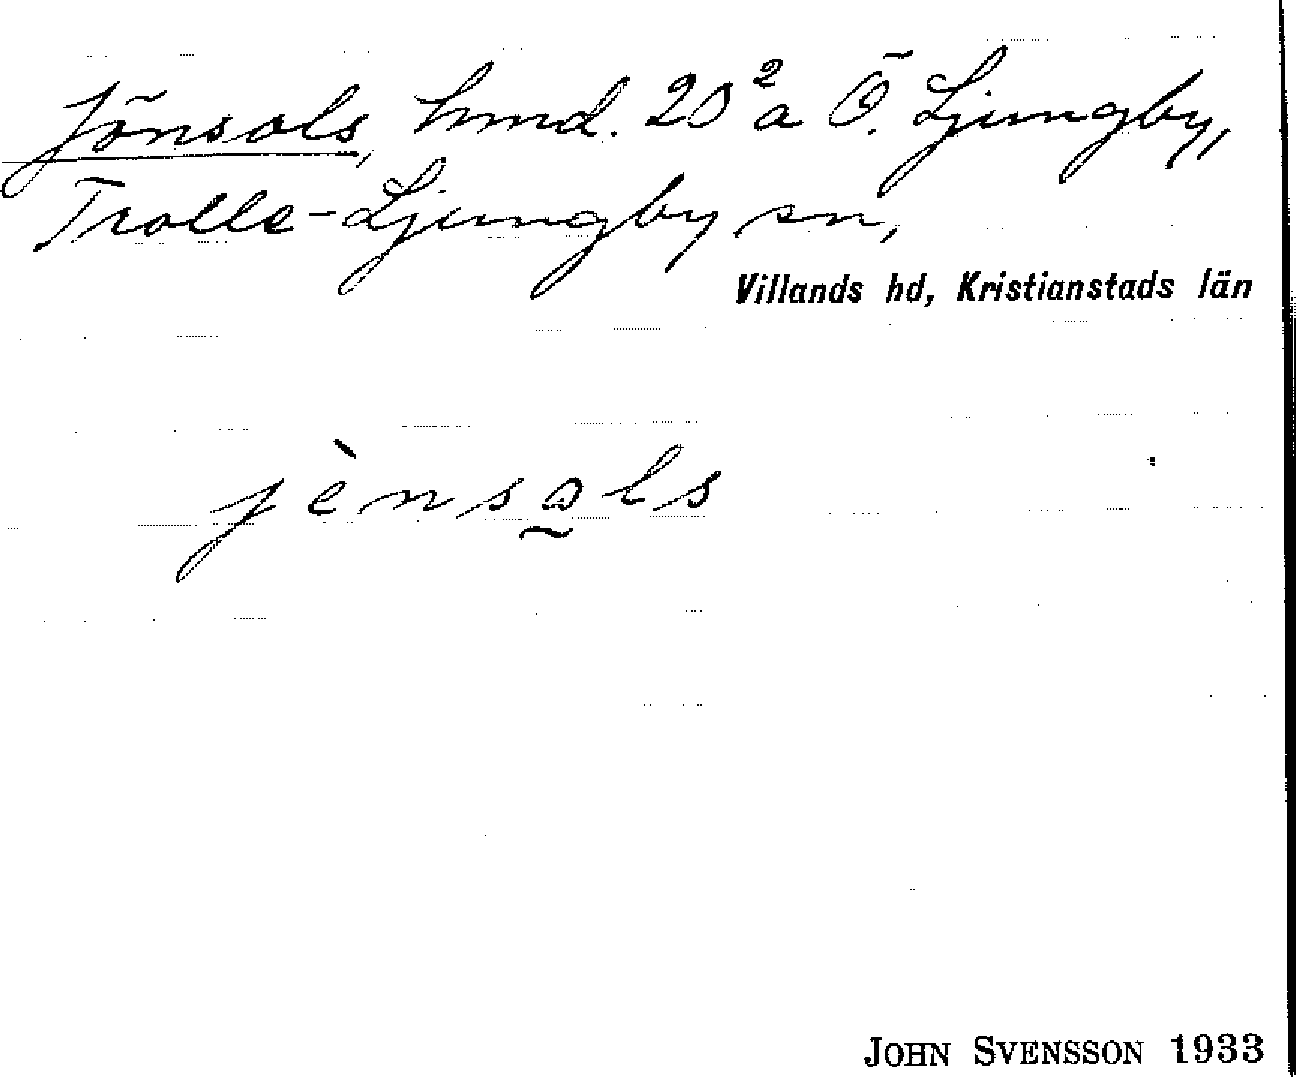 Jönsols, hmd. 20²a Ö. Ljungby,
Trolle-Ljungby sn,
Villands hd, Kristianstads län
jènso̰ls
JOHN SVENSSON 1933